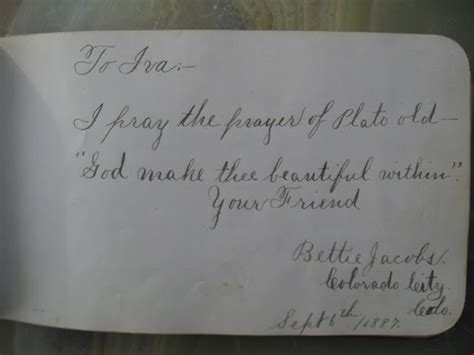 To Iva:-
I pray the prayer of Plato old-
"God make thee beautiful within".
Your Friend
Bettie Jacobs.
Colorado City.
Colo.
Sept 6th /1887.